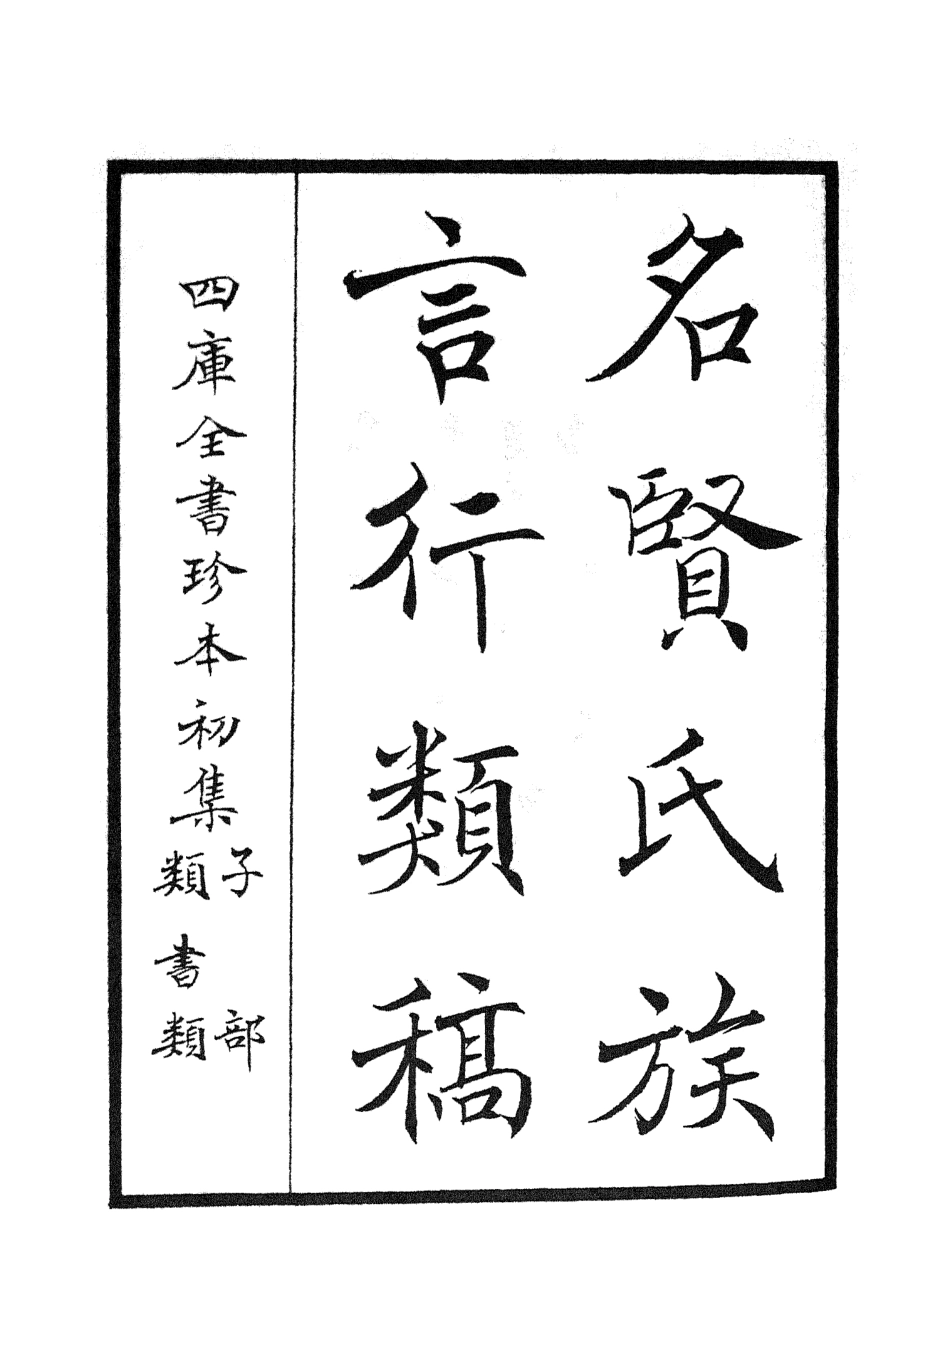 名賢氏族
言行類稿
四庫全書珍本初集
子部
類書類